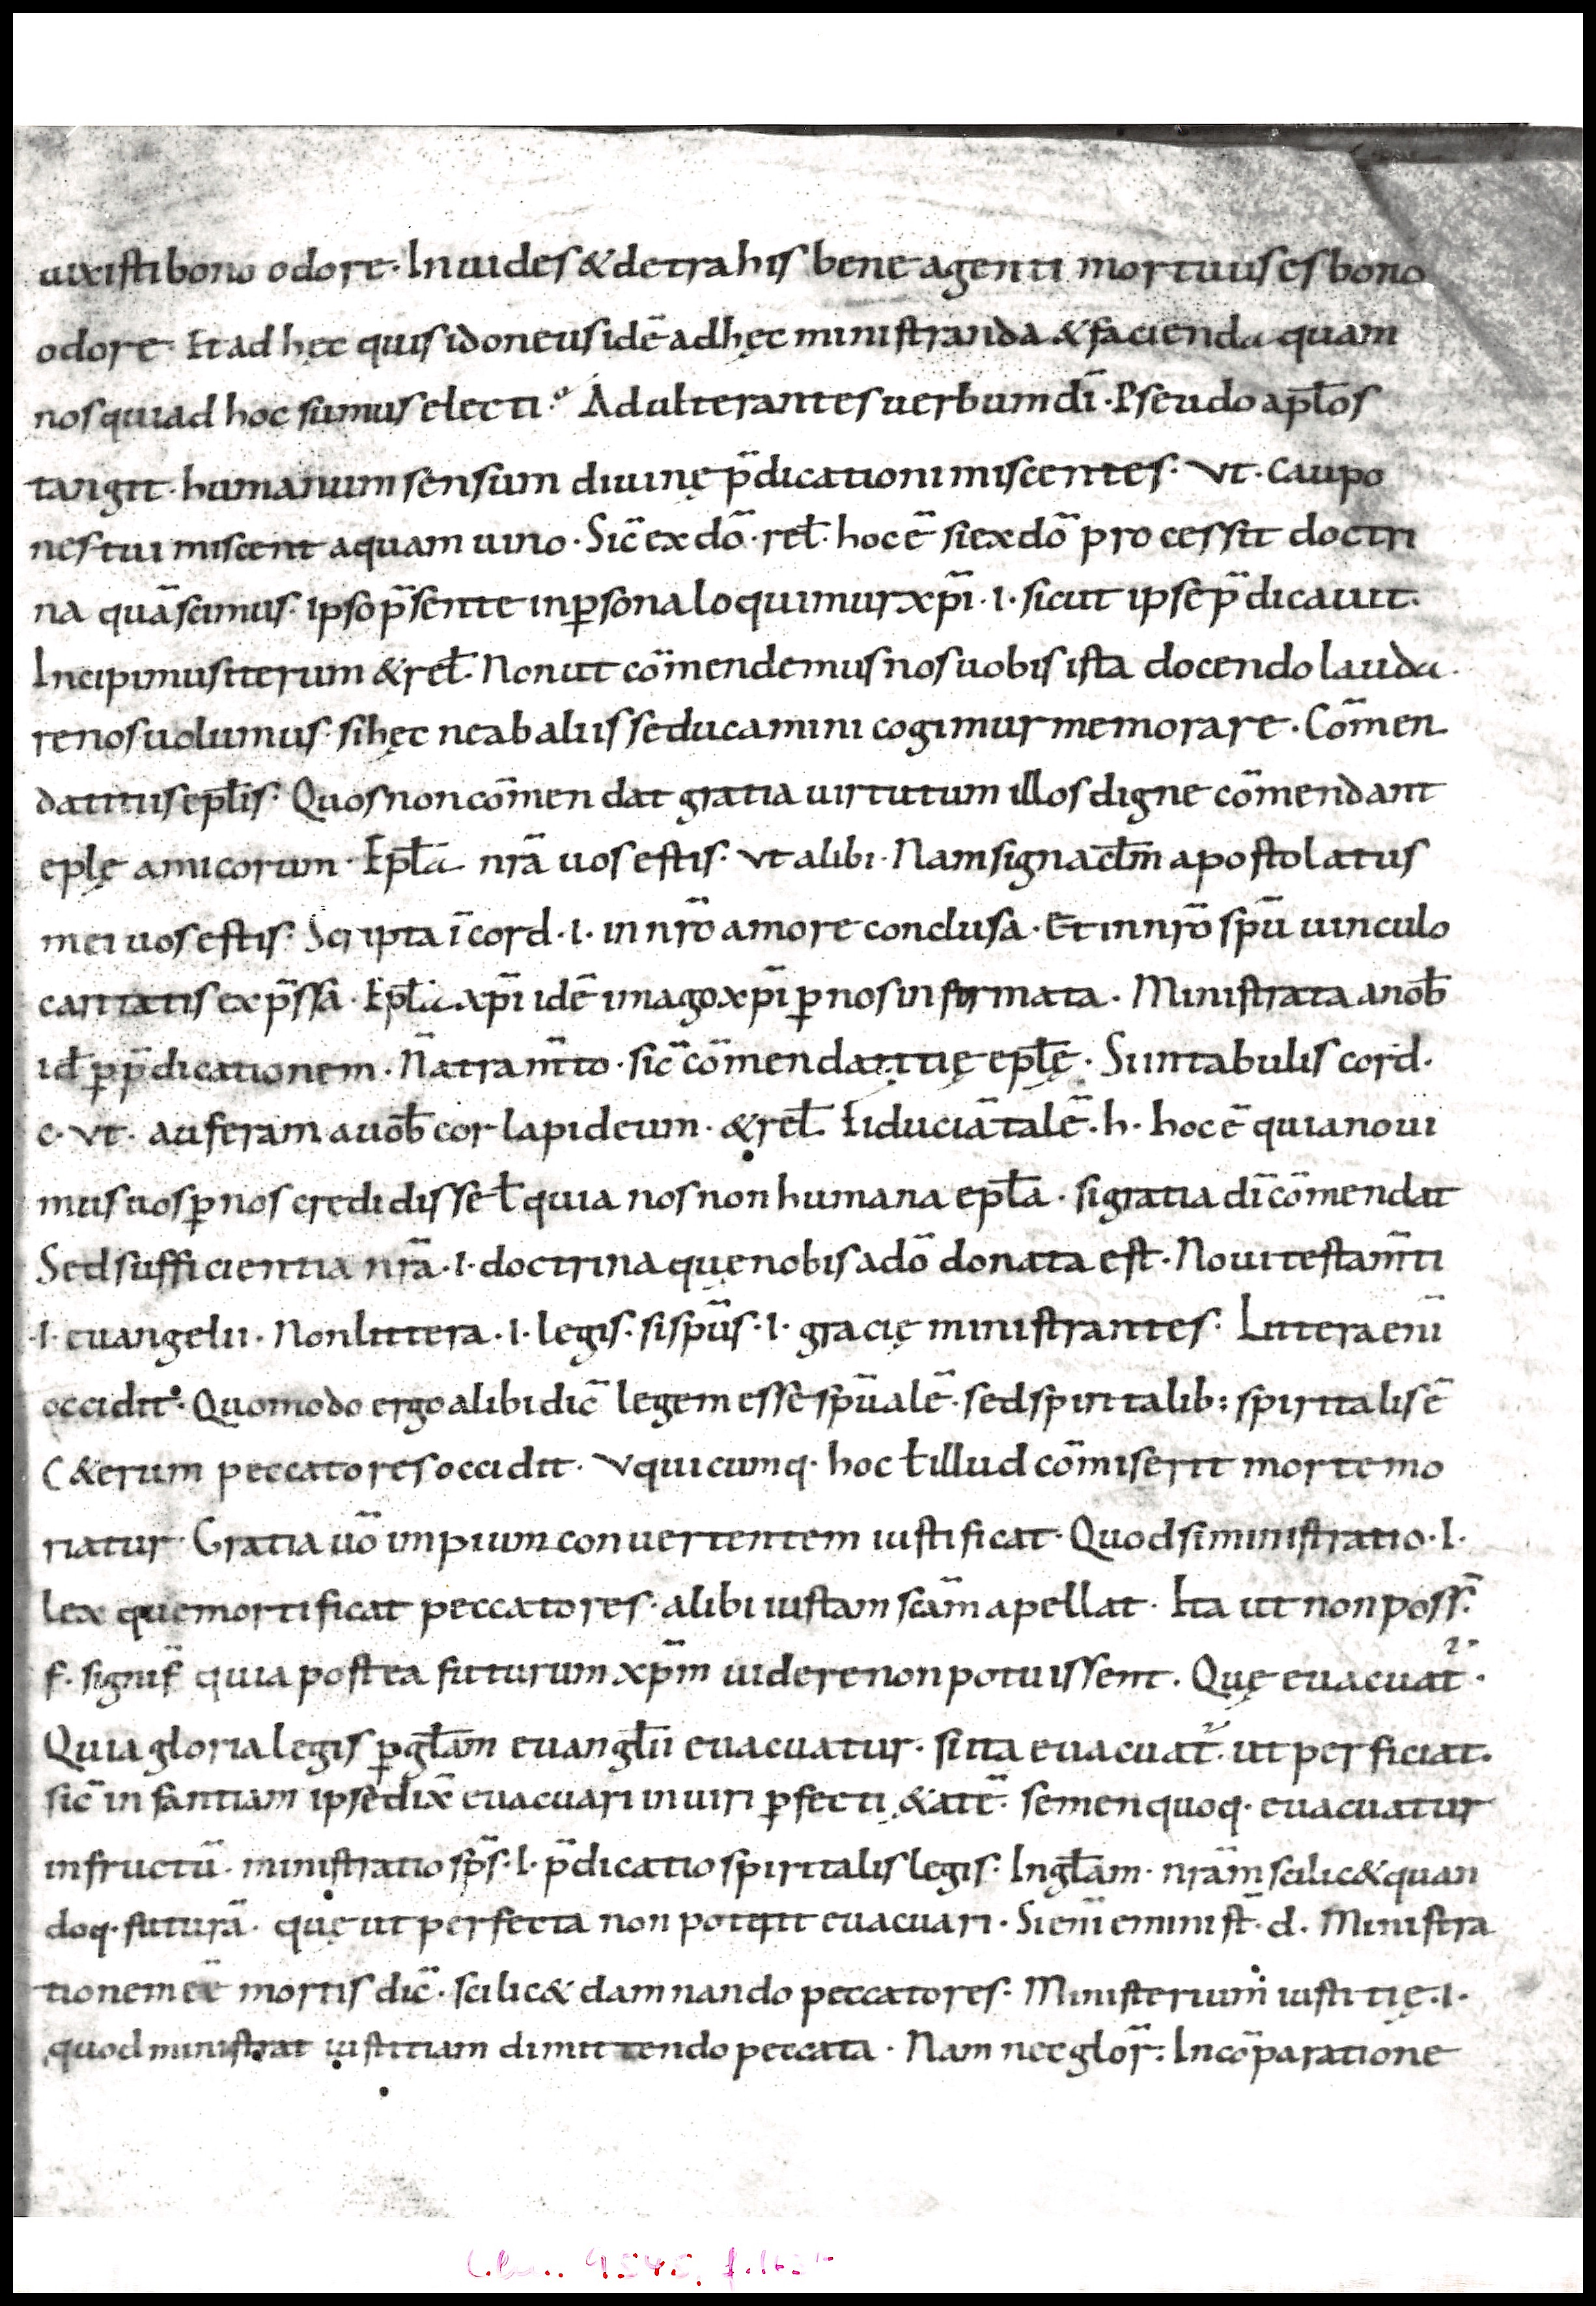 uixisti bono odore. Inuides & detrahis bene agenti mortuus es bono
odore. Et ad hęc quis idoneus idē ad hęc ministranda & facienda quam
nos qui ad hoc sumus electi. Adulterantes uerbum dī. Pseudo apłos
tangit. humanum sensum diuinę p̄dicationi miscentes. Vt. caupo
nes tui miscent aquam uino. Sic̄ ex dō. reł. hoc ē si ex dō processit doctri
na quā scimus. ipso p̄sente in ꝑsona loquimur xp̄i .i. sicut ipse p̄dicauit.
Incipimus iterum & reł. Non ut cōmendemus nos uobis ista docendo lauda
re nos uolumus. si hęc ne ab aliis seducamini cogimur memorare. Cōmen
datitiis epłis. Quos non cōmendat gratia uirtutum illos digne cōmendant
eplę amicorum. Epła nr̄a uos estis. Vt alibi. Nam signaclm̄ apostolatus
mei uos estis. Scripta ī cord .i. in nr̄o amore conclusa. Et in nr̄o spū uinculo
caritatis exp̄ssa. Epła xp̄i idē imago xp̄i ꝑ nos informata. Ministrata a nob̄
id̄ ꝑ p̄dicationem. N̄ atram̄to. sic̄ cōmendatitię epłę. S; in tabulis cord.
c. Vt. auferam a uob̄ cor lapideum. & reł. Fiduciā talē. h. hoc ē quia noui
mus uos ꝑ nos credidisse ł quia nos non humana epła. s; gratia dī cōmendat
Sed sufficientia nr̄a .i. doctrina quę nobis a dō donata est. Noui testam̄ti
.i. euangelii. Non littera .i. legis. s; sp̄us .i. gracię ministrantes. Littera enī
occidit. Quomodo ergo alibi dic̄ legem esse sp̄ualē. sed spiritalib; spiritalis ē
C&erum peccatores occidit. V quicumq. hoc ł illud cōmiserit morte mo
riatur. Gratia uō impium conuertentem iustificat. Quod si ministratio .i.
lex quę mortificat peccatores. alibi iustam scām apellat. Ita ut non poss̄.
f. signif̄ quia postea futurum xp̄m uidere non potuissent. Quę euacuat̄.
Quia gloria legis ꝑ głam euangłii euacuatur. s; ita euacuat̄. ut perficiat.
sic̄ infantiam ipse dix̄ euacuari in uiri ꝑfecti ętatē. semen quoq. euacuatur
in fructū. ministratio sp̄s .i. p̄dicatio spiritalis legis. In głam. nr̄am scilic& quan
doq. futurā. quę ut perfecta non poterit euacuari. Si enī e minist̄. d. Ministra
tionem eē mortis dic̄. scilic& damnando peccatores. Ministerium iustitię .i.
quod ministrat iustitiam dimittendo peccata. Nam nec glor̄: Incōparatione